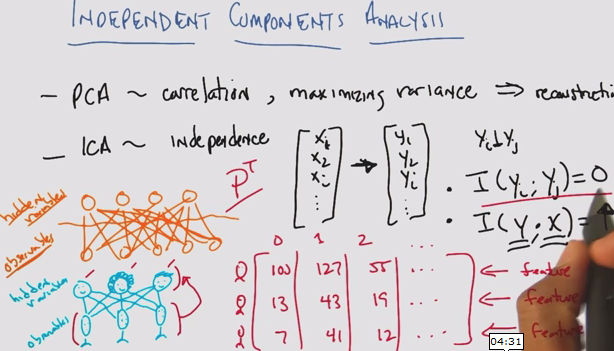 INDEPENDENT COMPONENTS ANALYSIS
— PCA ~ correlation, maximizing variance ⇒ reconstructi
— ICA ~ independence
[x₁ x₂ xᵢ ⋮] → [y₁ y₂ yᵢ ⋮]
yᵢ ⊥ yⱼ
• I(yᵢ; yⱼ) = 0
• I(Y; X) = ↑
Pᵀ
hidden variables
observables
hidden variables
observables
0 1 2 ...
100 127 55 ... ← feature
13 43 19 ... ← feature
7 41 12 ... ← feature
04:31